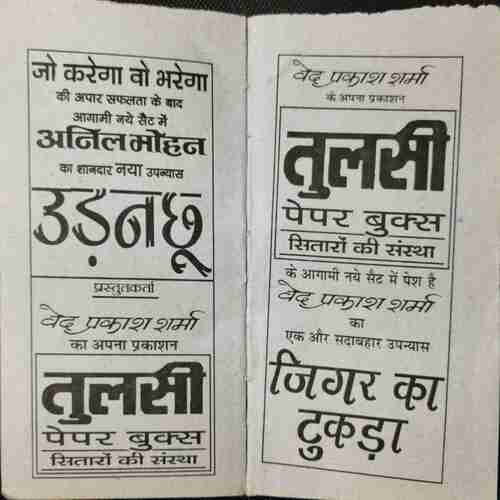 जो करेगा वो भरेगा
की अपार सफलता के बाद
आगामी नये सैट में
अनिल मोहन
का शानदार नया उपन्यास
उड़नछू
प्रस्तुतकर्ता
वेद प्रकाश शर्मा
का अपना प्रकाशन
तुलसी
पेपर बुक्स
सितारों की संस्था
वेद प्रकाश शर्मा
के अपना प्रकाशन
तुलसी
पेपर बुक्स
सितारों की संस्था
के आगामी नये सैट में पेश है
वेद प्रकाश शर्मा
का
एक और सदाबहार उपन्यास
जिगर का
टुकड़ा